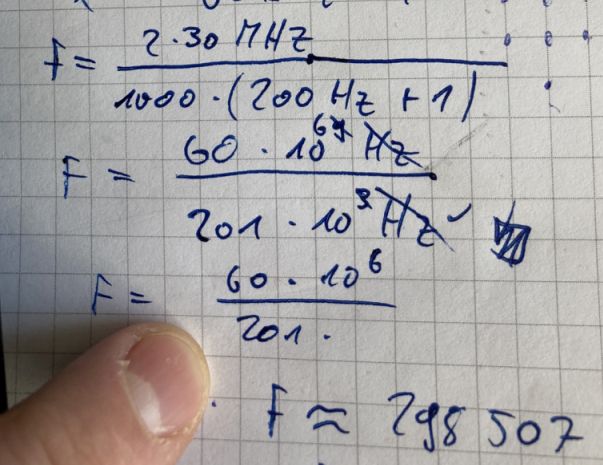 F = 2·30 MHz / 1000·(200 Hz + 1)
F = 60 · 10⁶ Hz / 201 · 10³ Hz
F = 60 · 10⁶ / 201 ·
F ≈ 298 507